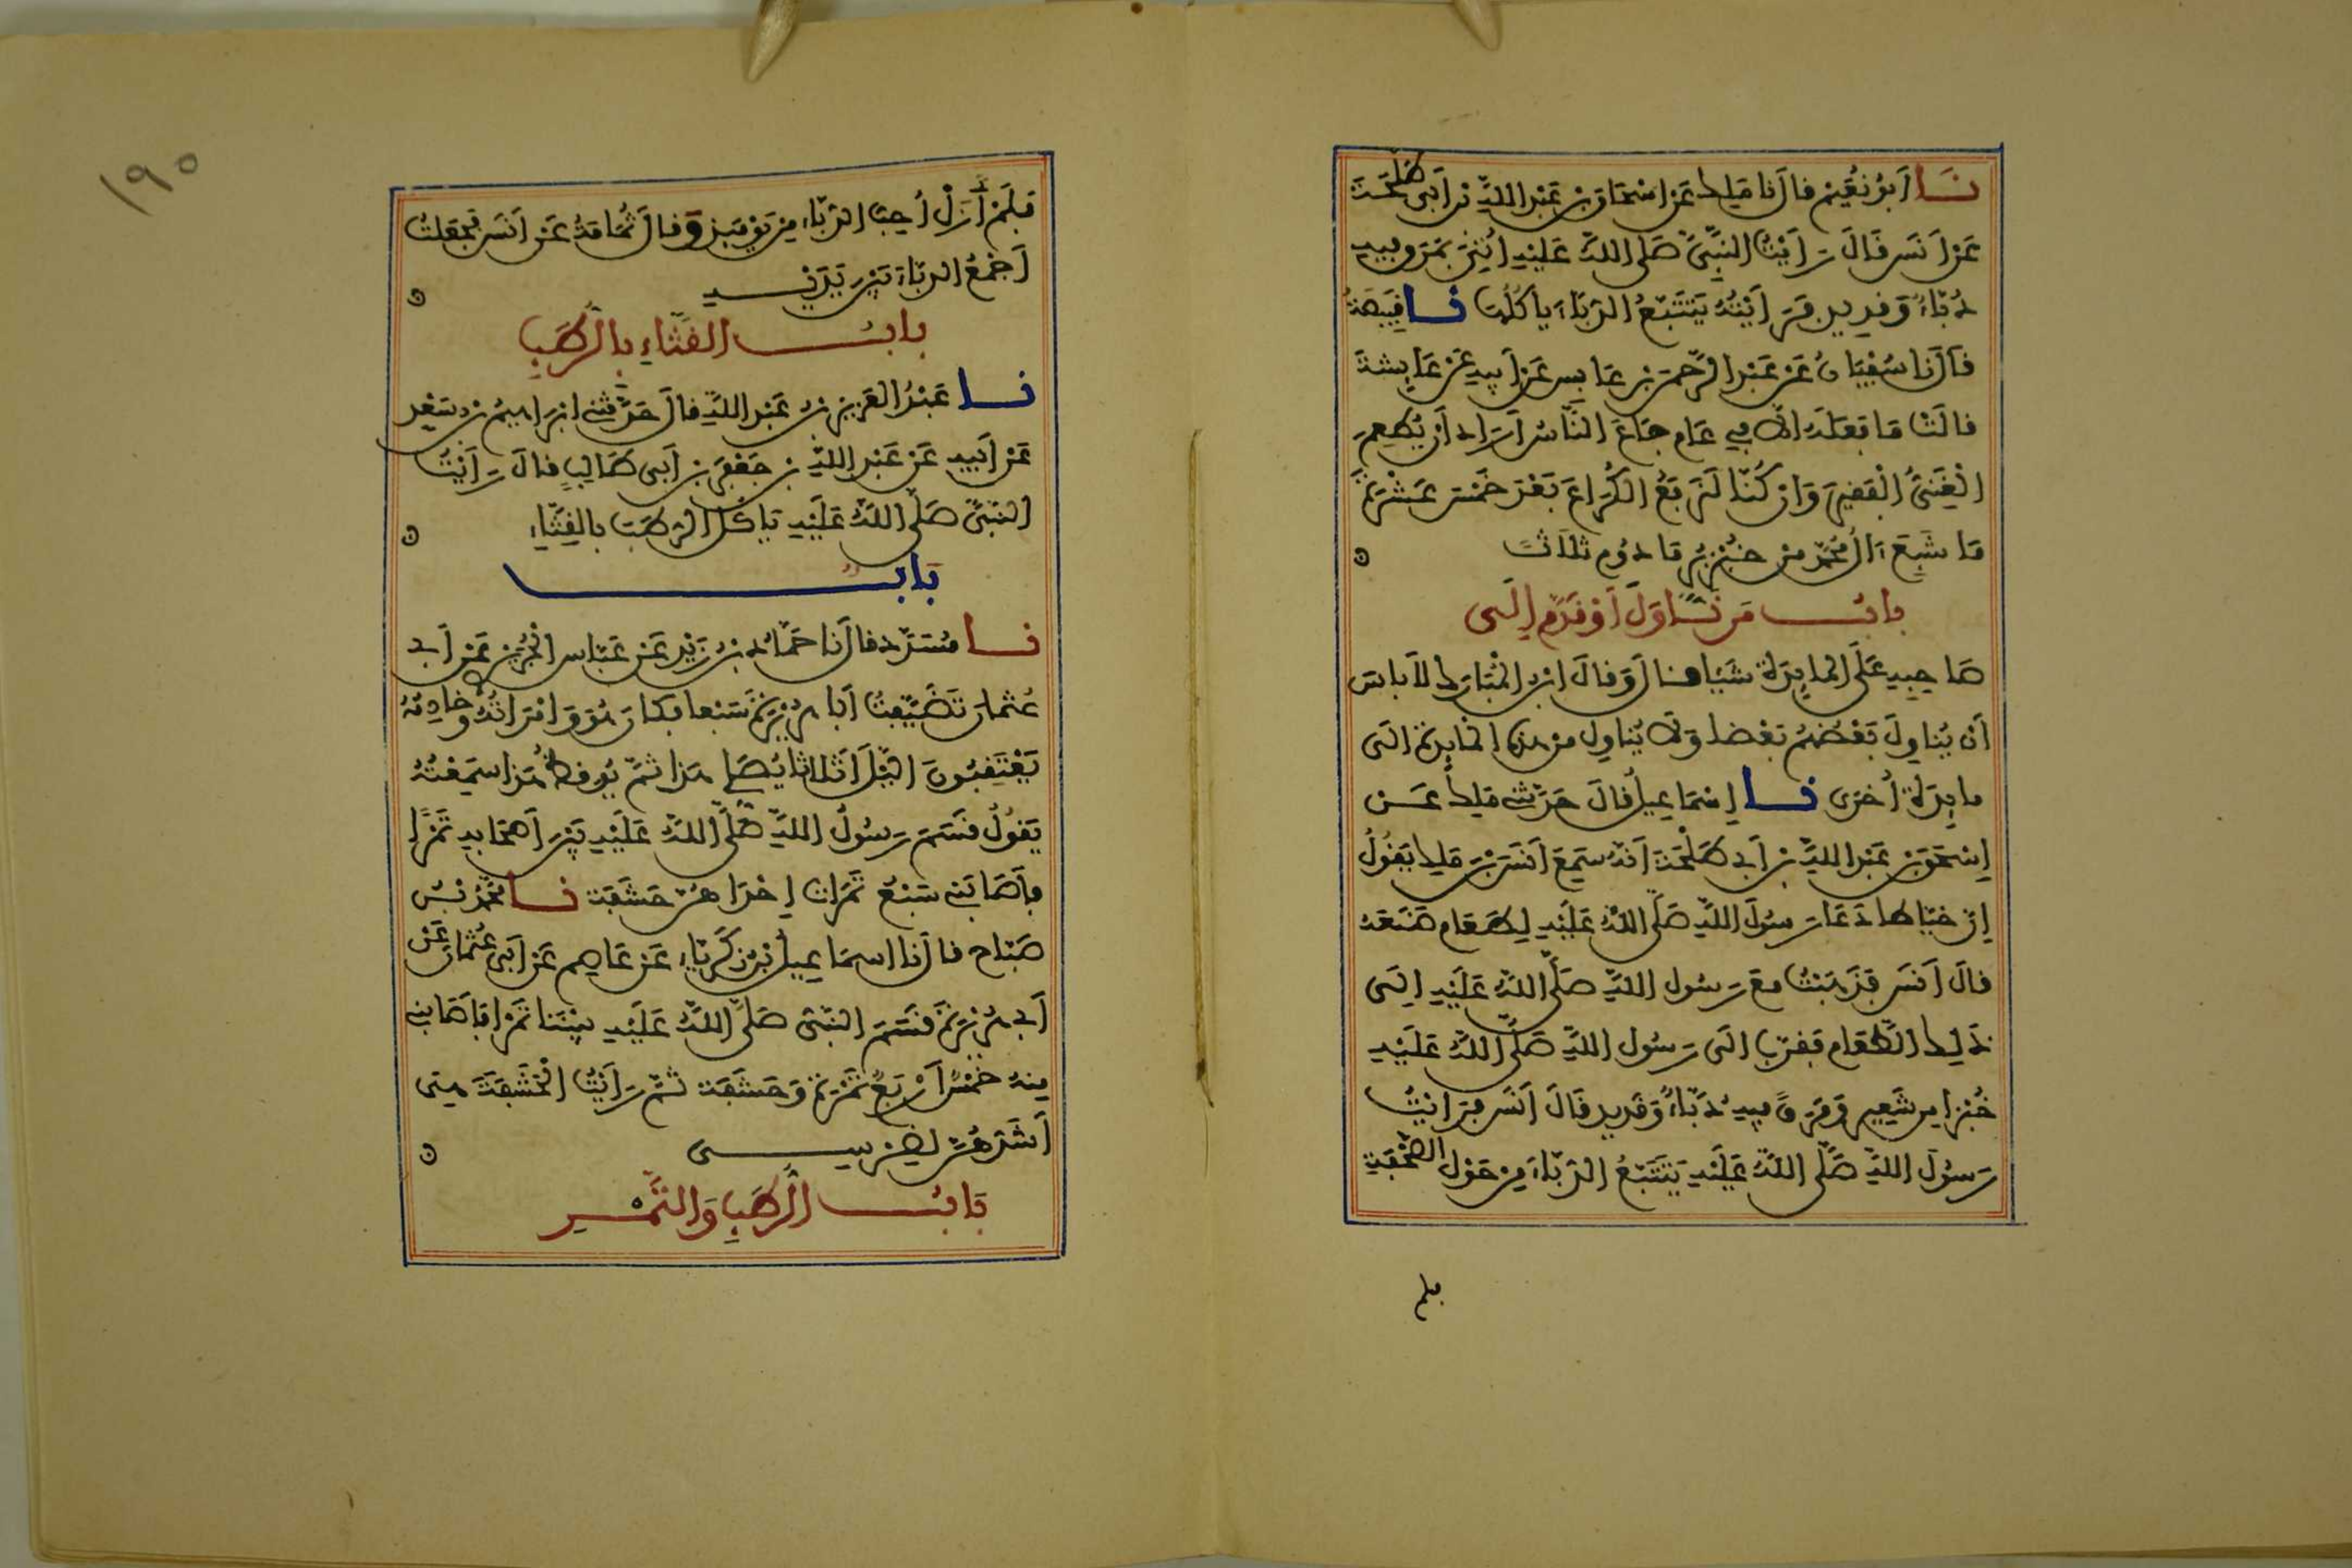 نَا أَبُو نُعَيْم قال نا مَلِك عَن إسْحَاق بْن عَبْد اللهِ بْن أَبِي طَلْحَة
عَن أَنَس قَالَ رَأَيْتُ النَّبِيَّ صَلَّى اللهُ عَلَيْهِ أُتِيَ بمَرَق فِيهِ
دُبَّاءٌ وَقَدِيد فَرَأَيْتُهُ يَتَتَبَّعُ الدُّبَّاءَ يَأكُلُهَا نا قَبِيصَةُ
قَالَ نَا سُفْيَانُ عَن عَبْد الرَّحْمَن بْن عَابِس عَن أَبِيهِ عَن عَائِشَةَ
قَالَتْ مَا فَعَلَهُ إلَّا فِي عَامٍ جَاعَ النَّاسُ أَرَادَ أَنْ يُطْعِمَ
الْغَنِيُّ الْفَقِيرَ وَإن كُنَّا لَنَرْفَعُ الْكُرَاعَ بَعْدَ خَمْسَ عَشْرَةَ
مَا شَبِعَ ءَالُ مُحَمَّد مِنْ خُبْزِ بُرٍّ مَادُومٍ ثَلَاثًا
بابُ مَن نَاوَلَ أَوْ قَدَّمَ إِلَى
صَاحِبِهِ عَلَى المَائِدَةِ شَيْئًا قَالَ وَقَالَ ابْن المُبَارَك لَا بَاسَ
أَنْ يُنَاوِلَ بَعْضُهُمْ بَعْضًا وَلَا يُنَاوِلُ مِن هَذِهِ المَائِدَةِ إلَى
مَائِدَةٍ أُخْرَى نا إسْمَاعِيلُ قَالَ حَدَّثَنِي مَلِكٌ عَن
إسْحَق بْن عَبْد اللهِ بْن أَبِي طَلْحَةَ أنَّهُ سَمِعَ أَنَسَ بْنَ مَلِك يَقُولُ
إنَّ خَيَّاطًا دَعَا رَسُولَ اللهِ صَلَّى اللهُ عَلَيْهِ لِطَعَامٍ صَنَعَهُ
قَالَ أَنَس فَذَهَبْتُ مَعَ رَسُولِ اللهِ صَلَّى اللهُ عَلَيْهِ إلَى
ذَلِكَ الطَّعَامِ فَقَرَّبَ إلَى رَسُولِ اللهِ صَلَّى اللهُ عَلَيْهِ
خُبْزًا مِن شَعِيرٍ وَمَرَقًا فِيهِ دُبَّاءٌ وَقَدِيد قَالَ أَنَس فَرَأَيْتُ
رَسُولَ اللهِ صَلَّى اللهُ عَلَيْهِ يَتَتَبَّعُ الدُّبَّاءَ مِن حَوْلِ الصَّحْفَةِ
فلم
١٩٠
فَلَمْ أَزَلْ أُحِبُّ الدُّبَّاءَ مِن يَوْمَئِذٍ وَقَالَ ثُمَامَةُ عَن أَنَس فَجَعَلْتُ
أَجْمَعُ الدُّبَّاءَ بَيْنَ يَدَيْهِ
بابُ القِثَّاءِ بِالرُّطَبِ
نا عَبْدُ العَزِيز بْنُ عَبْد اللهِ قَالَ حَدَّثَنِي إبْرَاهِيمُ بْنُ سَعْد
عَن أَبِيهِ عَن عَبْد اللهِ بْن جَعْفَر بْن أَبِي طَالِبٍ قَالَ رَأَيْتُ
النَّبِيَّ صَلَّى اللهُ عَلَيْهِ يَاكُلُ الرُّطَبَ بِالقِثَّاءِ
بَابٌ
نا مُسَدَّد قال نا حَمَّادُ بْنُ زَيْد عَن عَبَّاس الْجُرَيْرِي عَن أَبِي
عُثْمَانَ تَضَيَّفْتُ أَبَا هُرَيْرَةَ سَبْعًا فَكَانَ هُوَ وَامْرَأَتُهُ وَخَادِمُهُ
يَعْتَقِبُونَ اللَّيْلَ أَثْلَاثًا يُصَلِّي هَذَا ثُمَّ يُوقِظُ هَذَا سَمِعْتُهُ
يَقُولُ قَسَمَ رَسُولُ اللهِ صَلَّى اللهُ عَلَيْهِ بَيْنَ أَصْحَابِهِ تَمْرًا
فَأَصَابَنِي سَبْعُ تَمَرَاتٍ إحْدَاهُنَّ حَشَفَة نا مُحَمَّدُ بْنُ
صَبَّاح قَالَ نَا إسمَاعِيلُ بْنُ زَكَرِيَّاءَ عَن عَاصِم عَن أَبِي عُثْمَانَ عَن
أَبِي هُرَيْرَةَ قَسَمَ النَّبِيُّ صَلَّى اللهُ عَلَيْهِ بَيْنَنَا تَمْرًا فَأَصَابَنِي
مِنْهُ خَمْسٌ أَرْبَعُ تَمْرَةً وَحَشَفَة ثُمَّ رَأَيْتُ الْحَشَفَةَ هِيَ
أَشَدُّهُنَّ لِضِرْسِي
بَابُ الرُّطَبِ وَالتَّمْرِ